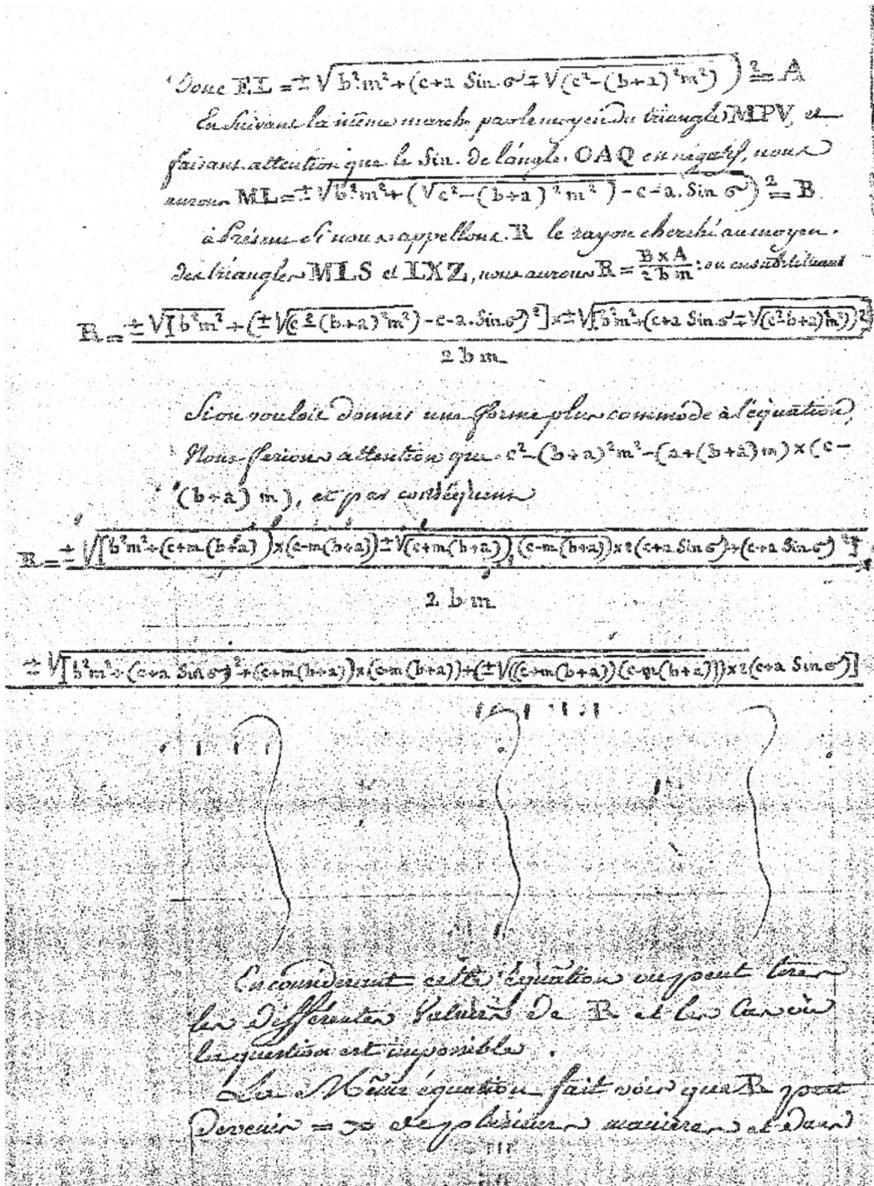 Donc EL = ±√b²m²+(c+a Sin.σ ∓ √(c²-(b+a)²m²))² = A
En Suivant la même marche par le moyen du triangle MPV, et
faisant attention que le Sin. de l'angle OAQ en négatif, nous
aurons ML = ±√b²m²+(√c²-(b+a)²m²)-c-a.Sin σ)² = B.
à Présent Si nous appellons R le rayon cherché au moyen
des triangles MLS et LXZ, nous aurons R = B×A / 2bm : ou en substituant
R = ±√[b²m²+(±√(c²-(b+a)²m²)-c-a.Sin.σ)²]×±√[b²m²+(c+a Sin σ ∓ √(c²-b+a)m²))²]
2bm
Si on vouloit donner une forme plus commode à l'équation,
Nous ferions attention que c²-(b+a)²m²-(a+(b+a)m)×(c-
(b+a)m), et par conséquent
R = ±√[b²m²+(c+m(b+a))×(c-m(b+a))±√(c+m(b+a)),(c-m(b+a))×2(c+a Sin σ)+(c+a Sin σ)²]×
2bm
±√[b²m²+(c+a Sin σ)²+(c+m(b+a))×(c-m(b+a))+(±√((c+m(b+a))(c-m(b+a)))×2(c+a Sin σ)]
En considerant cette équation on peut tirer
les différentes Valeurs de R et les Cas où
la question est impossible.
La Même équation fait voir que R peut
devenir = ∞ de plusieurs manieres et dans